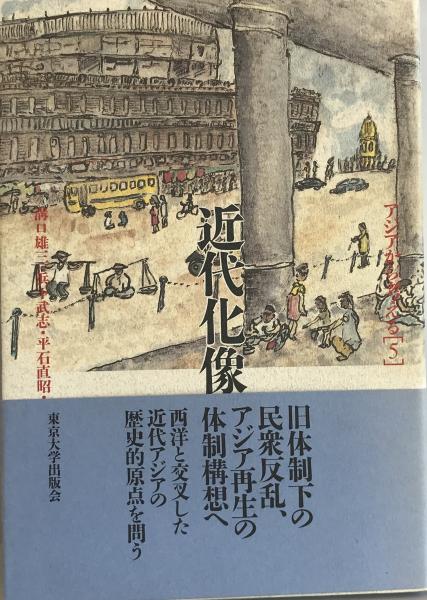 アジアから考える[5]
近代化像
溝口雄三・浜下武志・平石直昭・
旧体制下の
民衆反乱、
アジア再生の
体制構想へ
西洋と交叉した
近代アジアの
歴史的原点を問う
東京大学出版会